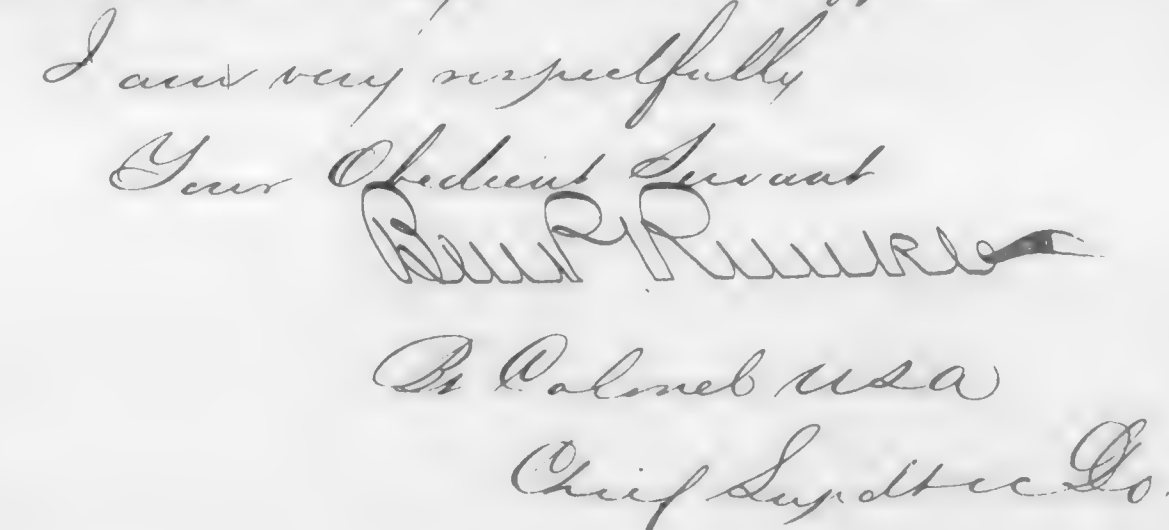 I am very respectfully
Your Obedient Servant
Ben P Runkle
Bt Colonel USA
Chief Supdt &c Do.